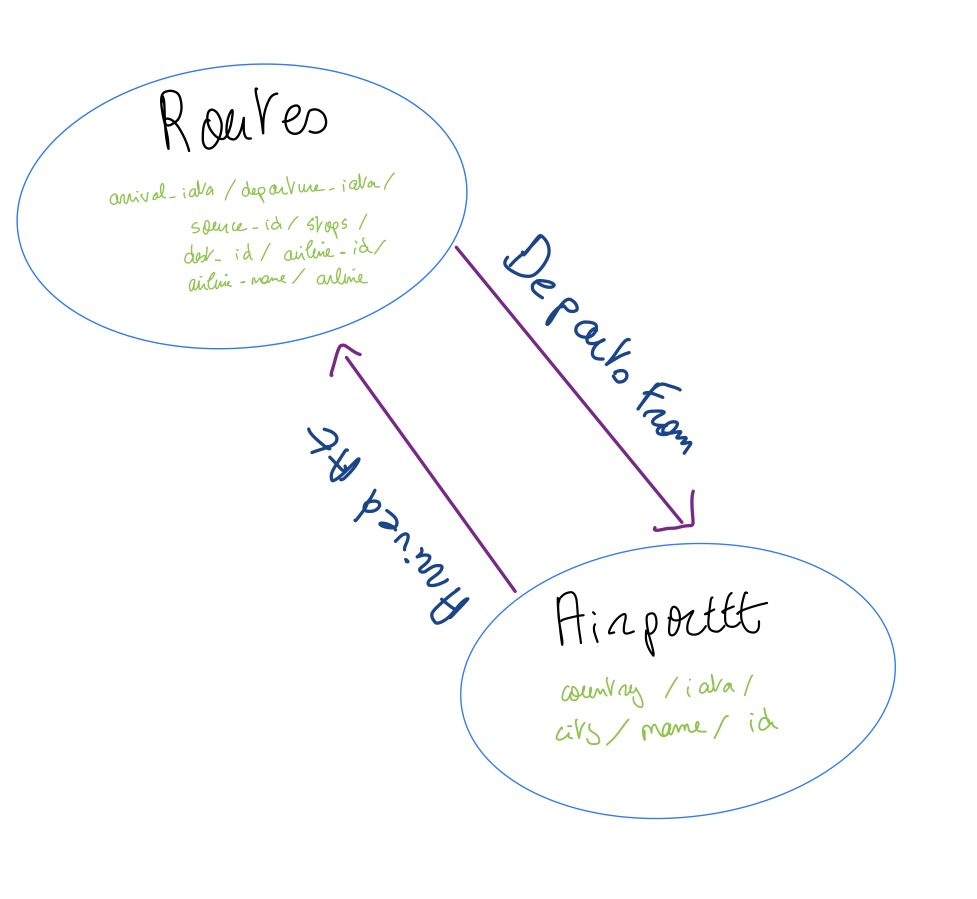 Routes
arrival_iata / departure_iata /
source_id / stops /
dest_id / airline_id /
airline_name / airline
Departs From
Arrived At
Airporttt
country / iata /
city / name / id